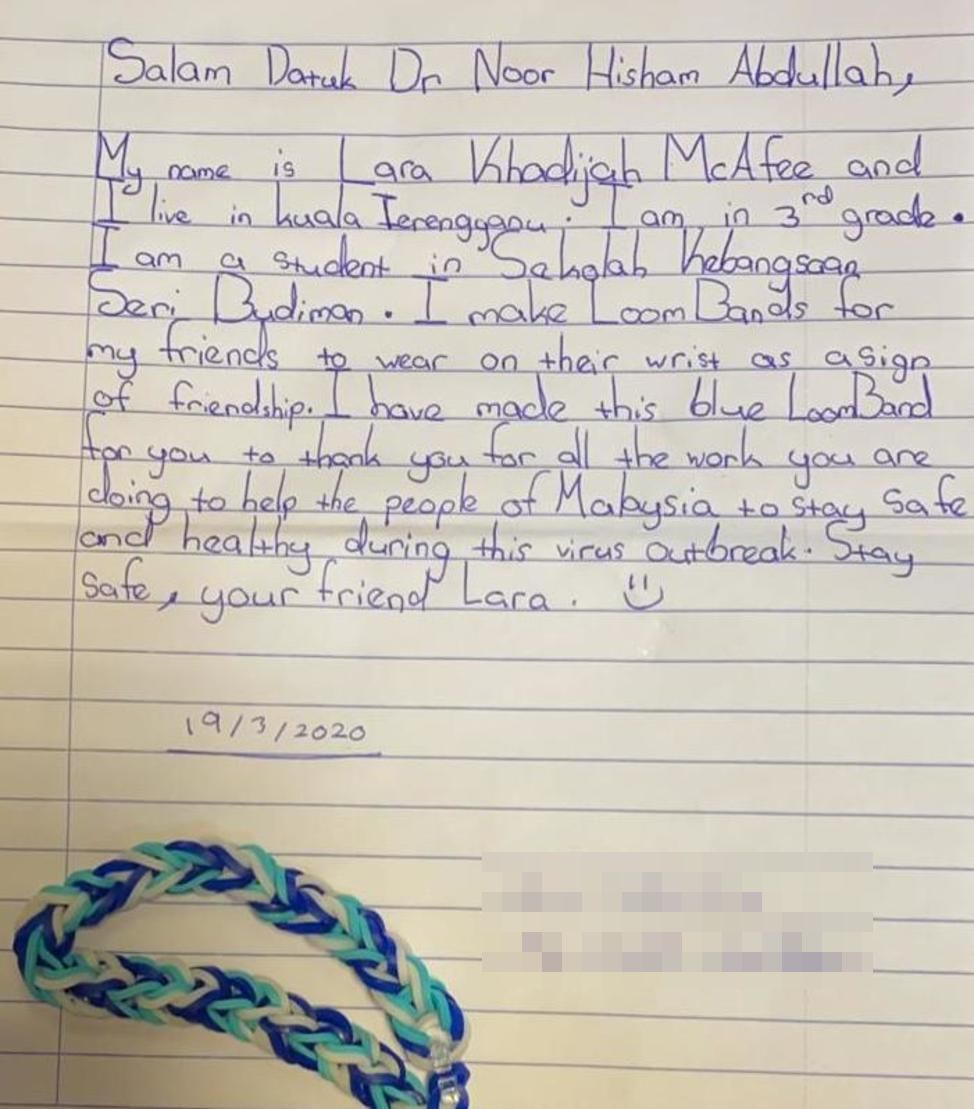 Salam Datuk Dr Noor Hisham Abdullah,
My name is Lara Khadijah McAfee and
I live in kuala Terengganu. I am in 3rd grade.
I am a student in Sekolah Kebangsaan
Seri Budiman. I make Loom Bands for
my friends to wear on their wrist as a sign
of friendship. I have made this blue Loom Band
for you to thank you for all the work you are
doing to help the people of Malaysia to stay safe
and healthy during this virus outbreak. Stay
safe, your friend Lara.
19/3/2020